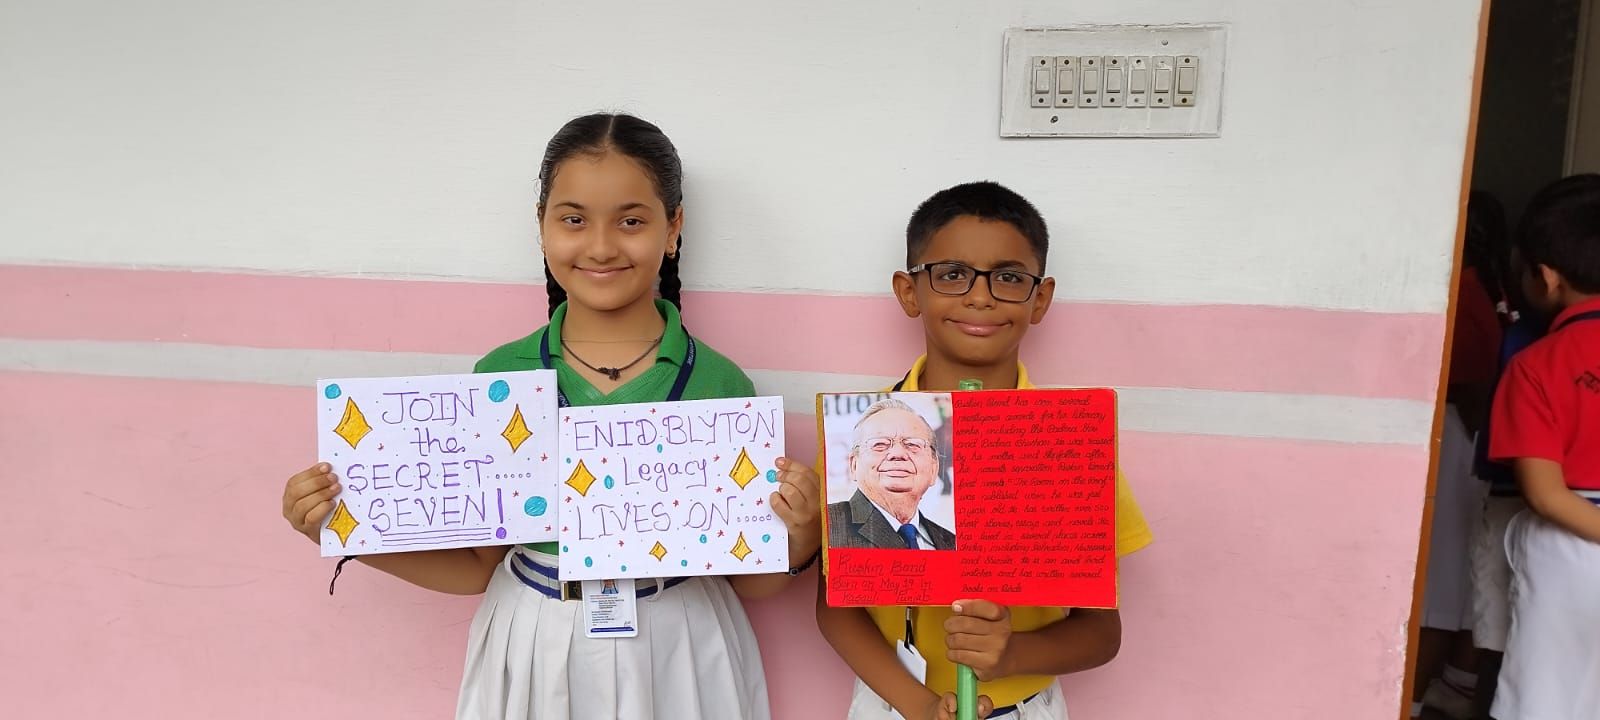 JOIN
the
SECRET.....
SEVEN!
ENID.BLYTON
Legacy
LIVES ON.....
Ruskin Bond
Born on May 19 in
Kasauli Punjab
Ruskin Bond has won several
prestigious awards for his literary
works, including the Padma Shri
and Padma Bhushan. He was raised
by his mother and stepfather after
his parents separation. Ruskin Bond's
first novel "The Room on the Roof"
was published when he was just
years old. He has written over 500
short stories, essays and novels. He
has lived in several places across
India, including Dehradun, Mussoorie
and Shimla. He is an avid bird
watcher and has written several
books on birds